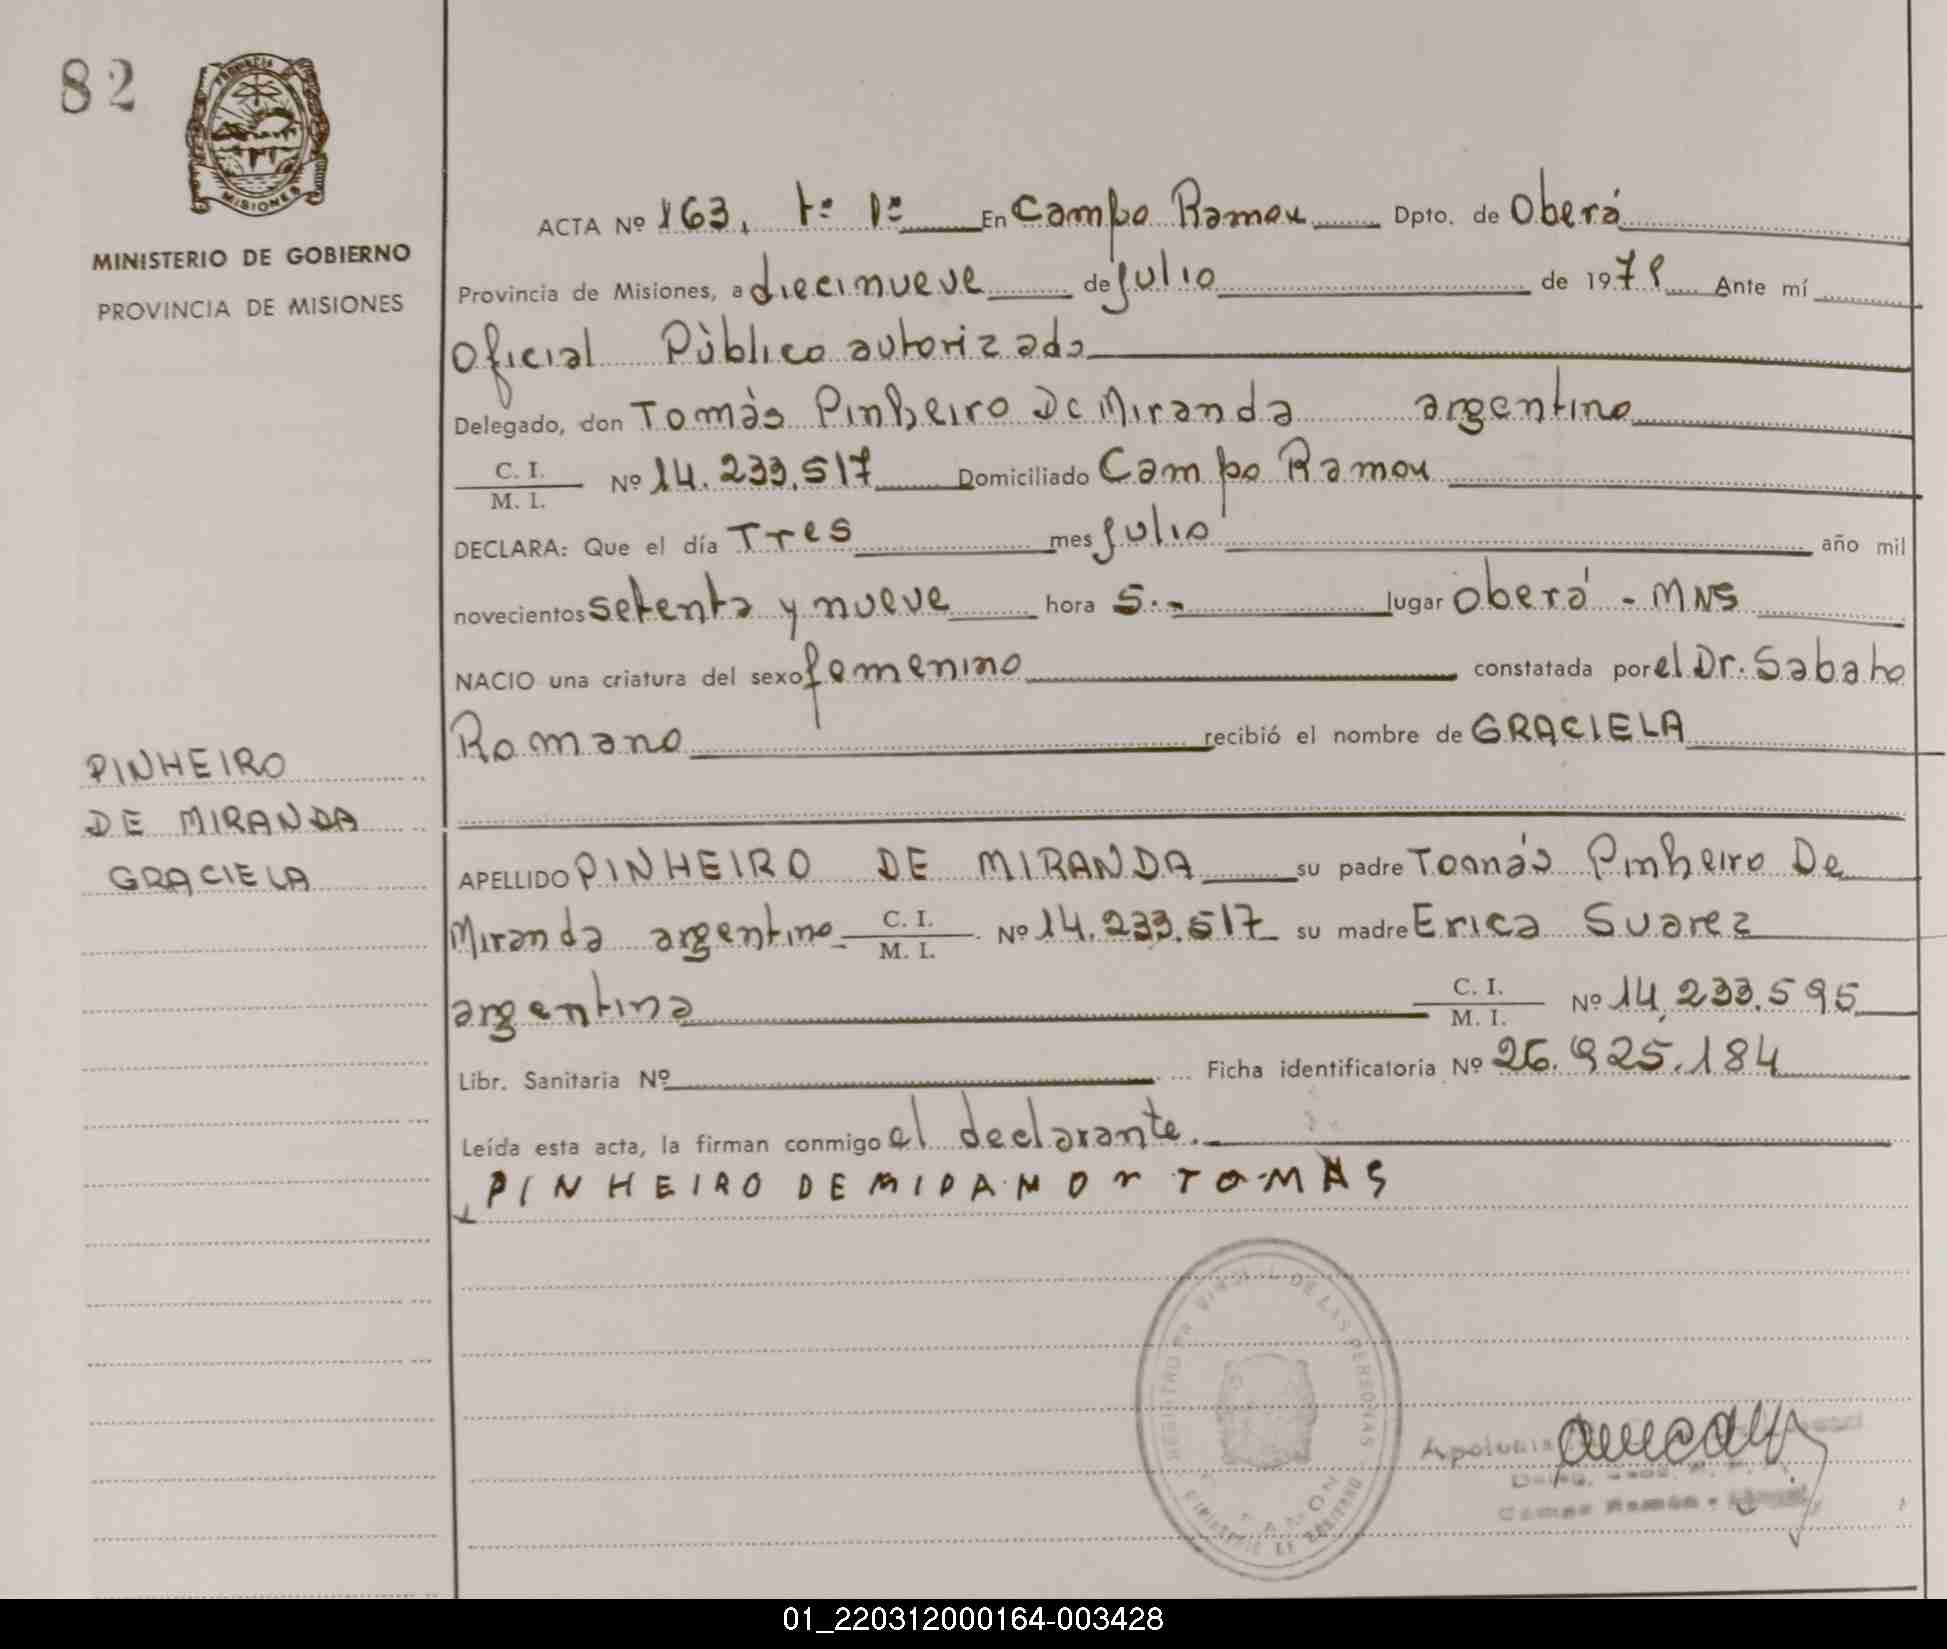 82
PROVINCIA DE
MISIONES
MINISTERIO DE GOBIERNO
PROVINCIA DE MISIONES
ACTA Nº 163, tº 1º En Campo Ramon Dpto. de Oberá
Provincia de Misiones, a diecinueve de julio de 1979 Ante mí
Oficial Público autorizado
Delegado, don Tomás Pinheiro De Miranda argentino
C. I.
M. I. Nº 14.233.517 Domiciliado Campo Ramon
DECLARA: Que el día Tres mes julio año mil
novecientos setenta y nueve hora 5.- lugar Oberá - MNS
NACIO una criatura del sexo femenino constatada por el Dr. Sabato
Romano recibió el nombre de GRACIELA
PINHEIRO
DE MIRANDA
GRACIELA
APELLIDO PINHEIRO DE MIRANDA su padre Tomás Pinheiro De
Miranda argentino C. I. M. I. Nº 14.233.517 su madre Erica Suarez
argentina C. I. M. I. Nº 14,233.595
Libr. Sanitaria Nº Ficha identificatoria Nº 26.925.184
Leída esta acta, la firman conmigo el declarante.
PINHEIRO DE TOMAS
REGISTRO DE LAS PERSONAS
MINISTERIO DE GOBIERNO
Campo Ramón
01_220312000164-003428